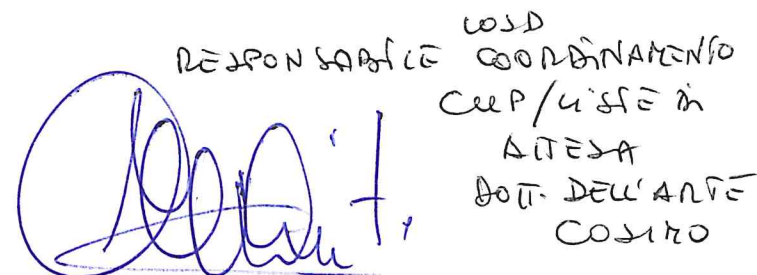 UOSD
RESPONSABILE COORDINAMENTO
CUP/LISTE DI
ATTESA
DOTT. DELL'ARTE
COSIMO